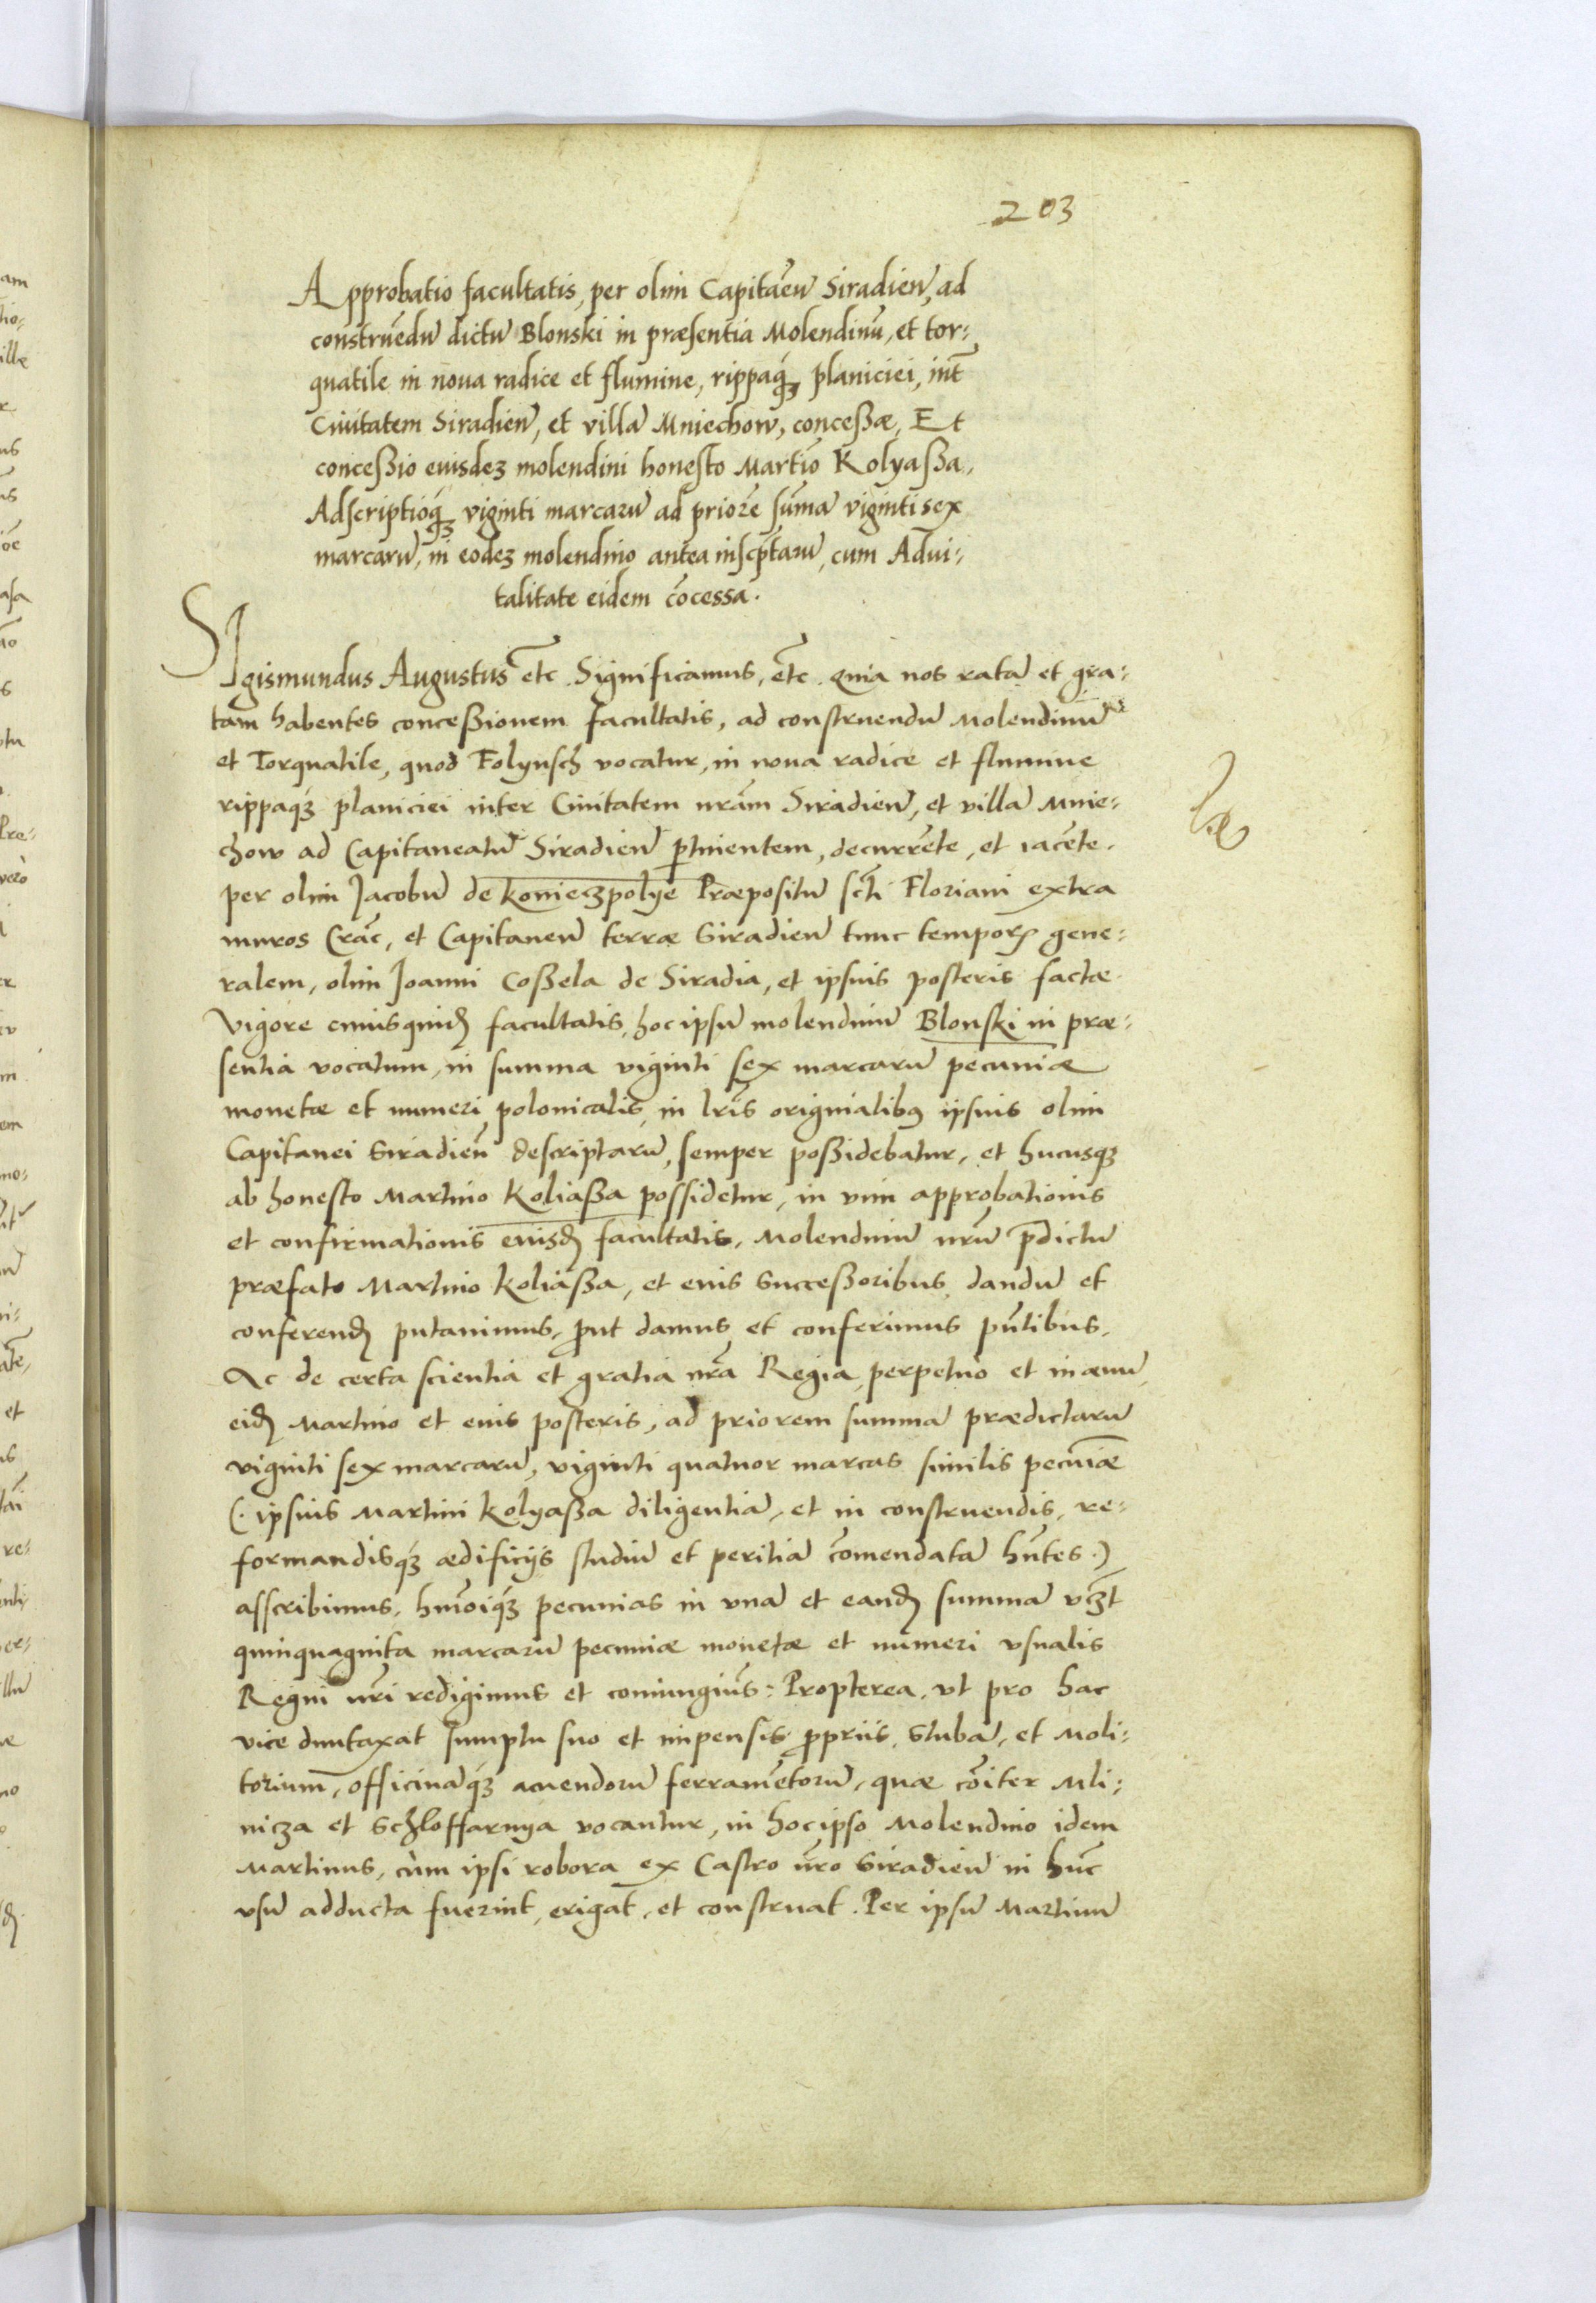 203
Approbatio facultatis, per olim Capitaẽū Siradieñ, ad
construẽdū dictū Blonski in præsentia Molendinū, et tor⸗
quatile in noua radice et flumine, rippaq́ꝫ planiciei, int̃
Ciuitatem Siradieñ, et villã Mniechow, conceßæ, Et
conceßio eiusdeꝫ molendini honesto Martĩo Kolyaßa,
Adscriptioq́ꝫ viginti marcarū ad priorẽ sũmã viginti sex
marcarū, in eodeꝫ molendino antea inscp̃tarū, cum Adui⸗
talitate eidem cõcessa.
SIgismundus Augustus etc̃. Significamus, etc̃. Quia nos ratã et gra⸗
tam habentes conceßionem facultatis, ad construendū Molendinū
et Torquatile, quod Folyusch vocatur, in noua radice et flumine
rippaq́ꝫ planiciei inter Ciuitatem nrãm Siradieñ, et villã Mnie⸗
chow ad Capitaneatū Siradieñ ꝑtinientem, decurrẽte, et iacẽte.
per olim Jacobū de Konieczpolye Præpositū sctĩ Floriani extra
muros Crac̃, et Capitaneū terræ Siradieñ tunc temporꝭ gene⸗
ralem, olim Joanni Coßela de Siradia, et ipsius posteris factæ.
Vigore cuiusquidꝫ facultatis, hoc ipsū molendinū Blonski in præ⸗
sentia vocatum, in summa viginti sex marcarū pecuniæ
monetæ et numeri polonicalis, in lrĩs originalibꝰ ipsius olim
Capitanei Siradieñ descriptarū, semper poßidebatur, et hucusqꝫ
ab honesto Martino Koliaßa possidetur, in vim approbationis
et confirmationis eiusdꝫ facultatis, Molendinū nrũm p̃dictū
præfato Martino Koliaßa, et eius Succeßoribus, dandū et
conferendꝫ putauimus, ꝓut damus et conferimus pñtibus.
Ac de certa scientia et gratia nrã Regia, perpetuò et in æuū
eidꝫ Martino et eius posteris, ad priorem summã prædictarū
viginti sex marcarū, viginti quatuor marcas similis pecuniæ
(. ipsius Martini Kolyaßa diligentiã, et in construendis, re⸗
formandisq́ꝫ ædificijs studiū et peritiã cõmendatã hñtes .)
asscribimus, hmõiq́ꝫ pecunias in vnã et eandꝫ summã vꝫt
quinquaginta marcarū pecuniæ monetæ et numeri vsualis
Regni nrĩ redigimus et coniungiũs: Propterea, vt pro hac
vice duntaxat sumptu suo et impensis ꝓpriis, Stubã, et Moli⸗
torium, officinãq́ꝫ acuendorū ferramẽtorū, quæ cõiter Mli⸗
nicza et Schloffarnya vocantur, in hoc ipso Molendino idem
Martinus, cùm ipsi robora ex Castro nr̃o Siradieñ in hũc
vsū adducta fuerint, erigat, et construat. Per ipsū Martinū